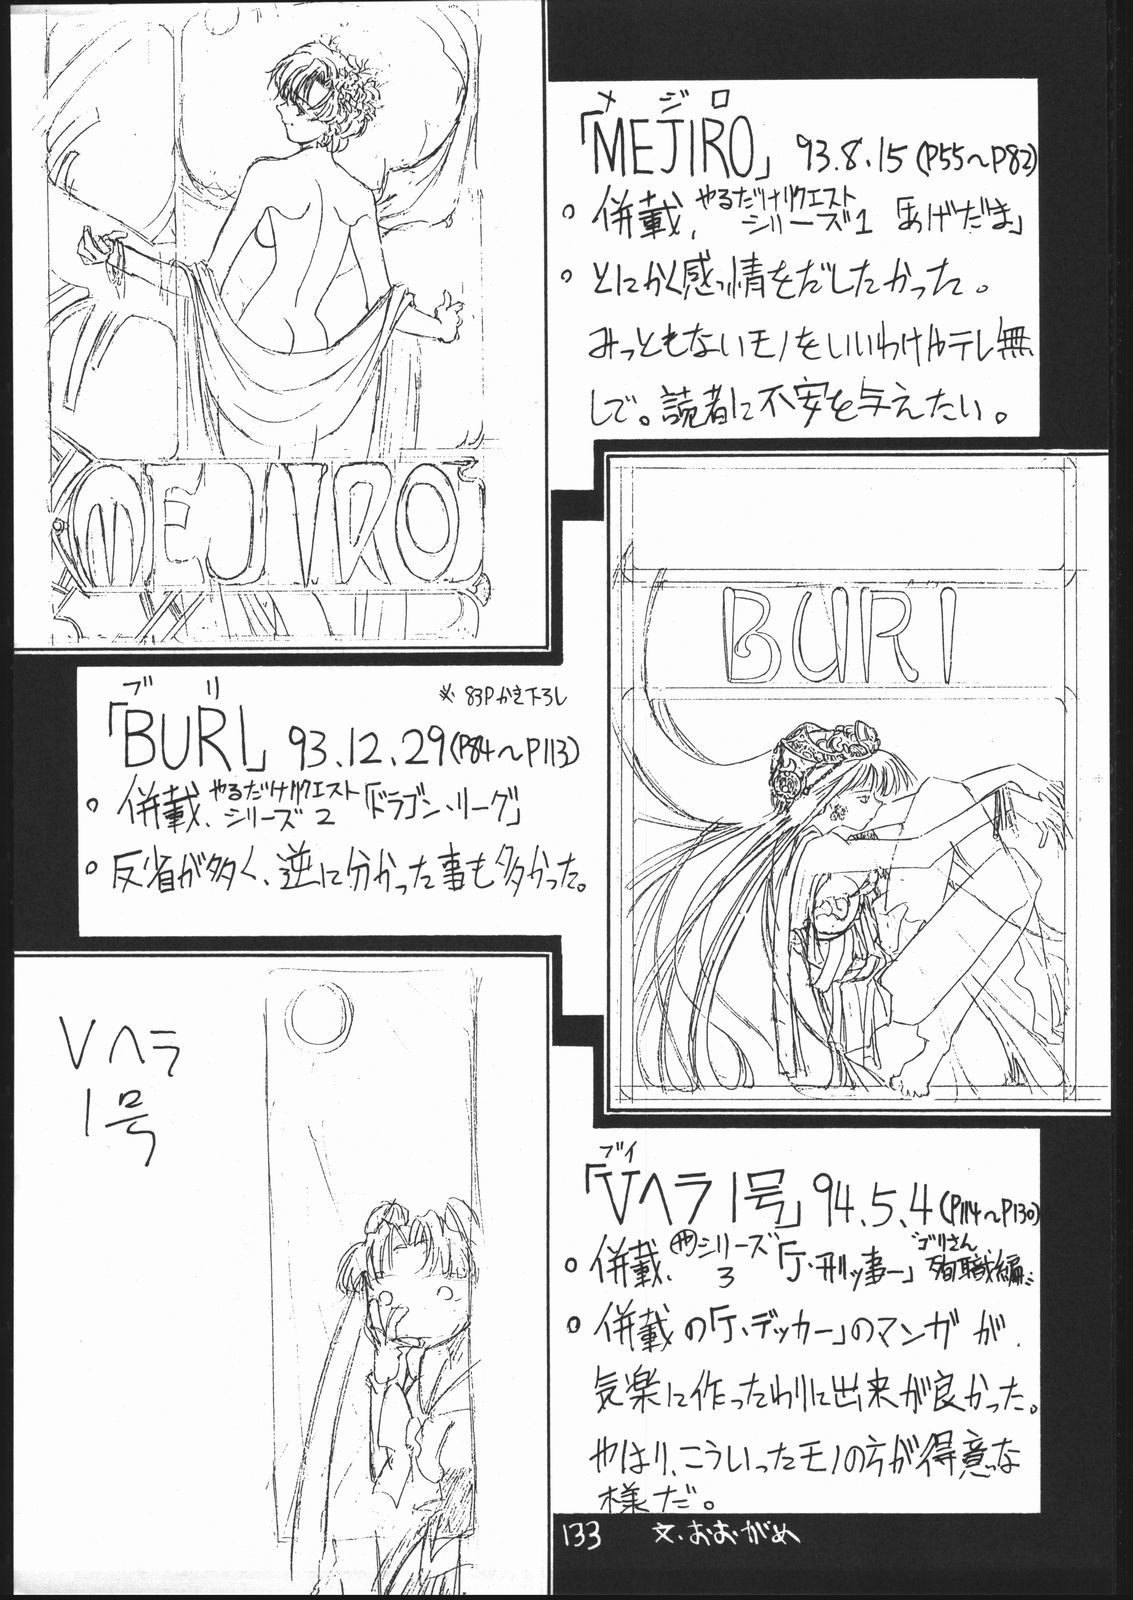 メジロ
「MEJIRO」 93.8.15 (P55〜P82)
。併載、やるだけリクエストシリーズ1「あげだま」
。とにかく感情をだしたかった。
みっともないモノをいいわけやテレ無
しで。読者に不安を与えたい。
MEJIRO
BURI
ブリ
※83Pかき下ろし
「BURI」 93.12.29 (P84〜P113)
。併載、やるだけリクエストシリーズ2「ドラゴン・リーグ」
。反省が多く、逆に分かった事も多かった。
Vヘラ
1号
ブイ
「Vヘラ1号」 94.5.4 (P114〜P130)
。併載、シリーズ3「J・刑ッ事ー」ゴリさん殉職編
。併載の「J・デッカー」のマンガが、
気楽に作ったわりに出来が良かった。
やはり、こういったモノの方が得意な
様だ。
133 文・おおがめ